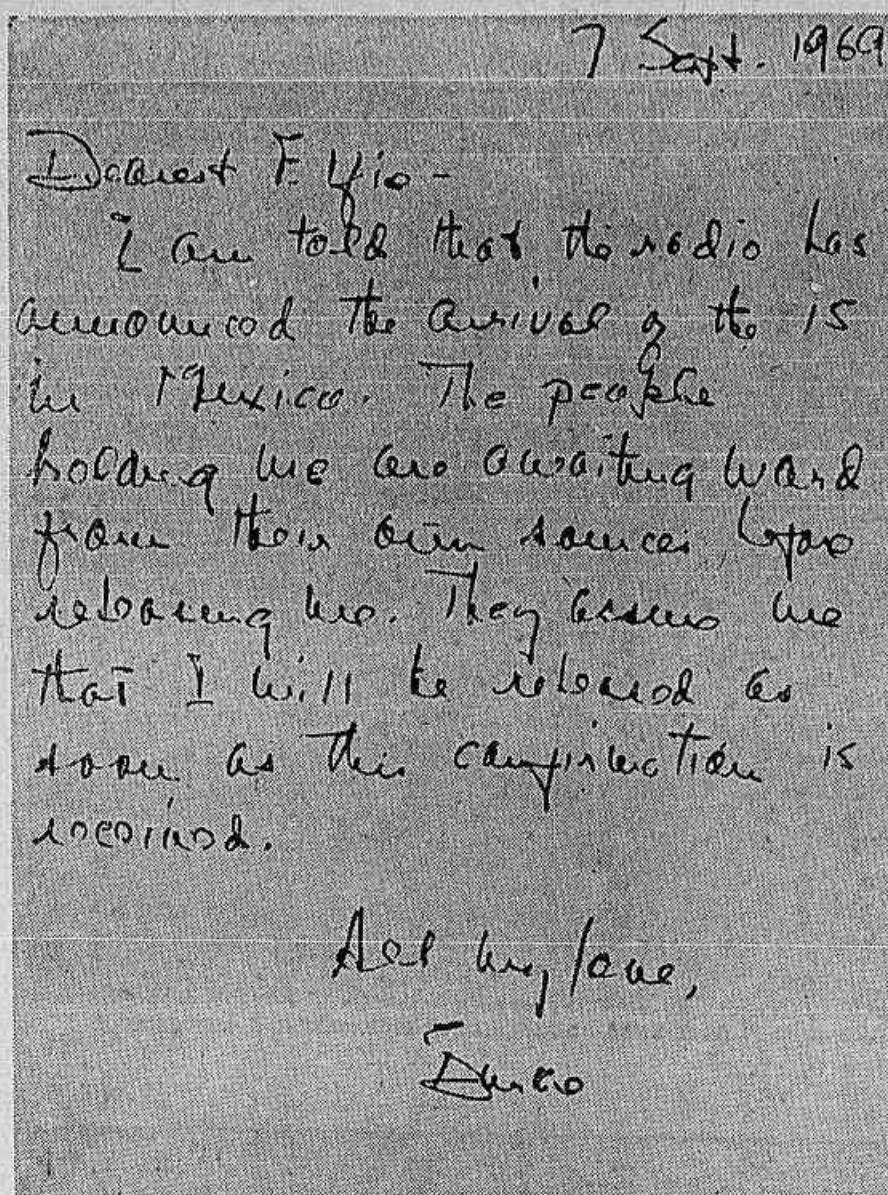 7 Sept. 1969
Dearest Elfie -
I am told that the radio has
announced the arrival of the 15
in Mexico. The people
holding me are awaiting word
from their own sources before
releasing me. They assure me
that I will be released as
soon as this confirmation is
received.
All my love,
Burke